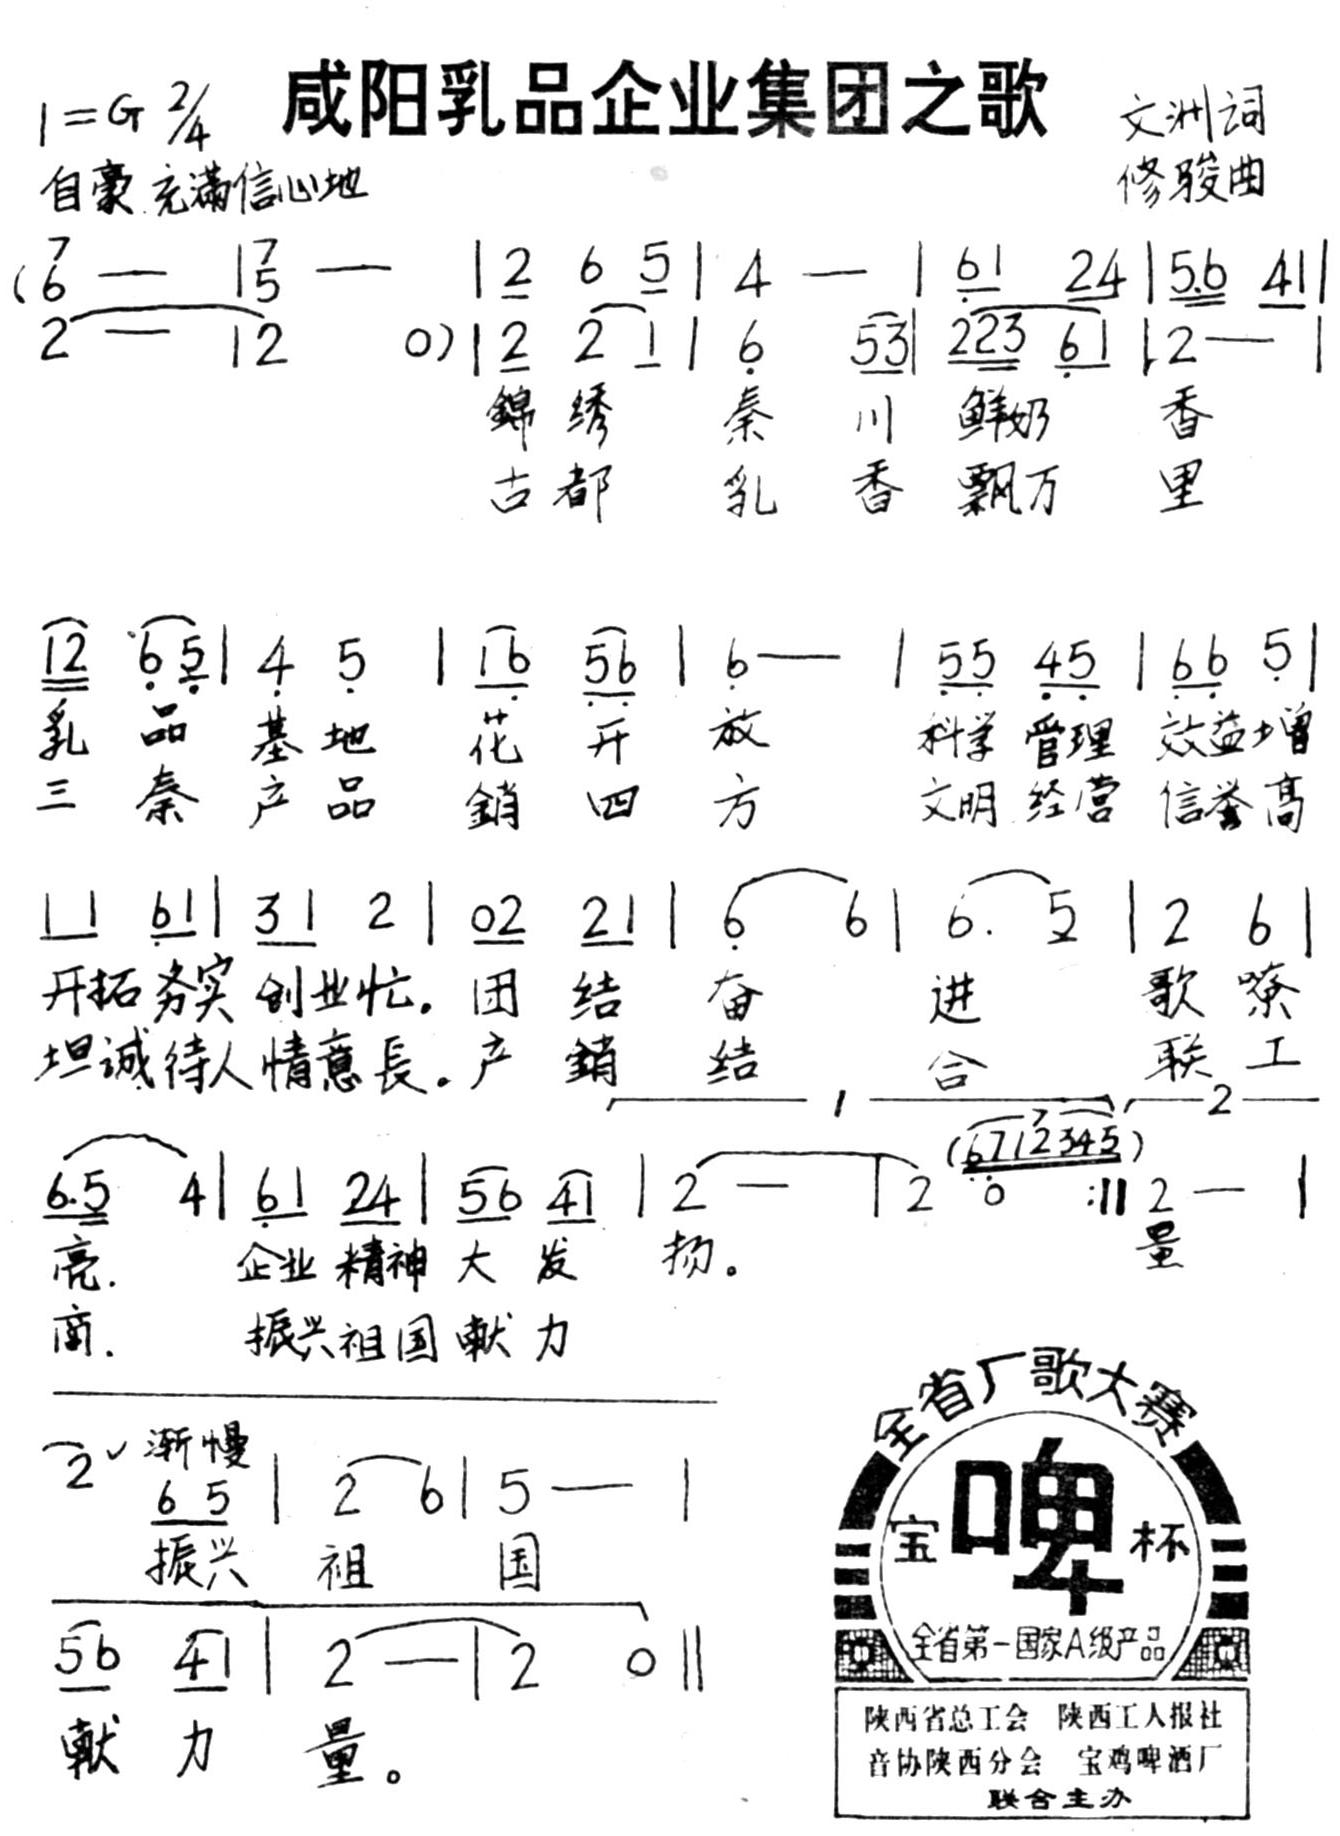 咸阳乳品企业集团之歌
1=G 2/4
文洲词
自豪 充满信心地
修骏曲
(7/6 — | 7/5 — | 2 6 5 | 4 — | 61 24 | 5.6 41 |
2 — | 2 0) | 2 2 1 | 6 53 | 223 61 | 2 — |
錦绣 秦川 鲜奶 香
古都 乳香 飘万 里
12 65 | 4 5 | 16 56 | 6 — | 55 45 | 66 5 |
乳品 基地 花开 放 科学 管理 效益增
三秦 产品 銷四 方 文明 经营 信誉高
11 61 | 31 2 | 02 21 | 6 6 | 6. 5 | 2 6 |
开拓 务实 创业忙。团结 奋 进 歌嘹
坦诚待人情意長。产銷 结 合 联工
1 2
(6712345)
6.5 4 | 61 24 | 56 41 | 2 — | 2 0 :|| 2 — |
亮. 企业 精神 大发 扬。 量
商. 振兴祖国献力
渐慢
2 65 | 2 6 | 5 — |
振兴 祖 国
56 41 | 2 — | 2 0 ||
献 力 量。
全省厂歌大赛
宝啤杯
全省第一国家A级产品
陕西省总工会 陕西工人报社
音协陕西分会 宝鸡啤酒厂
联合主办